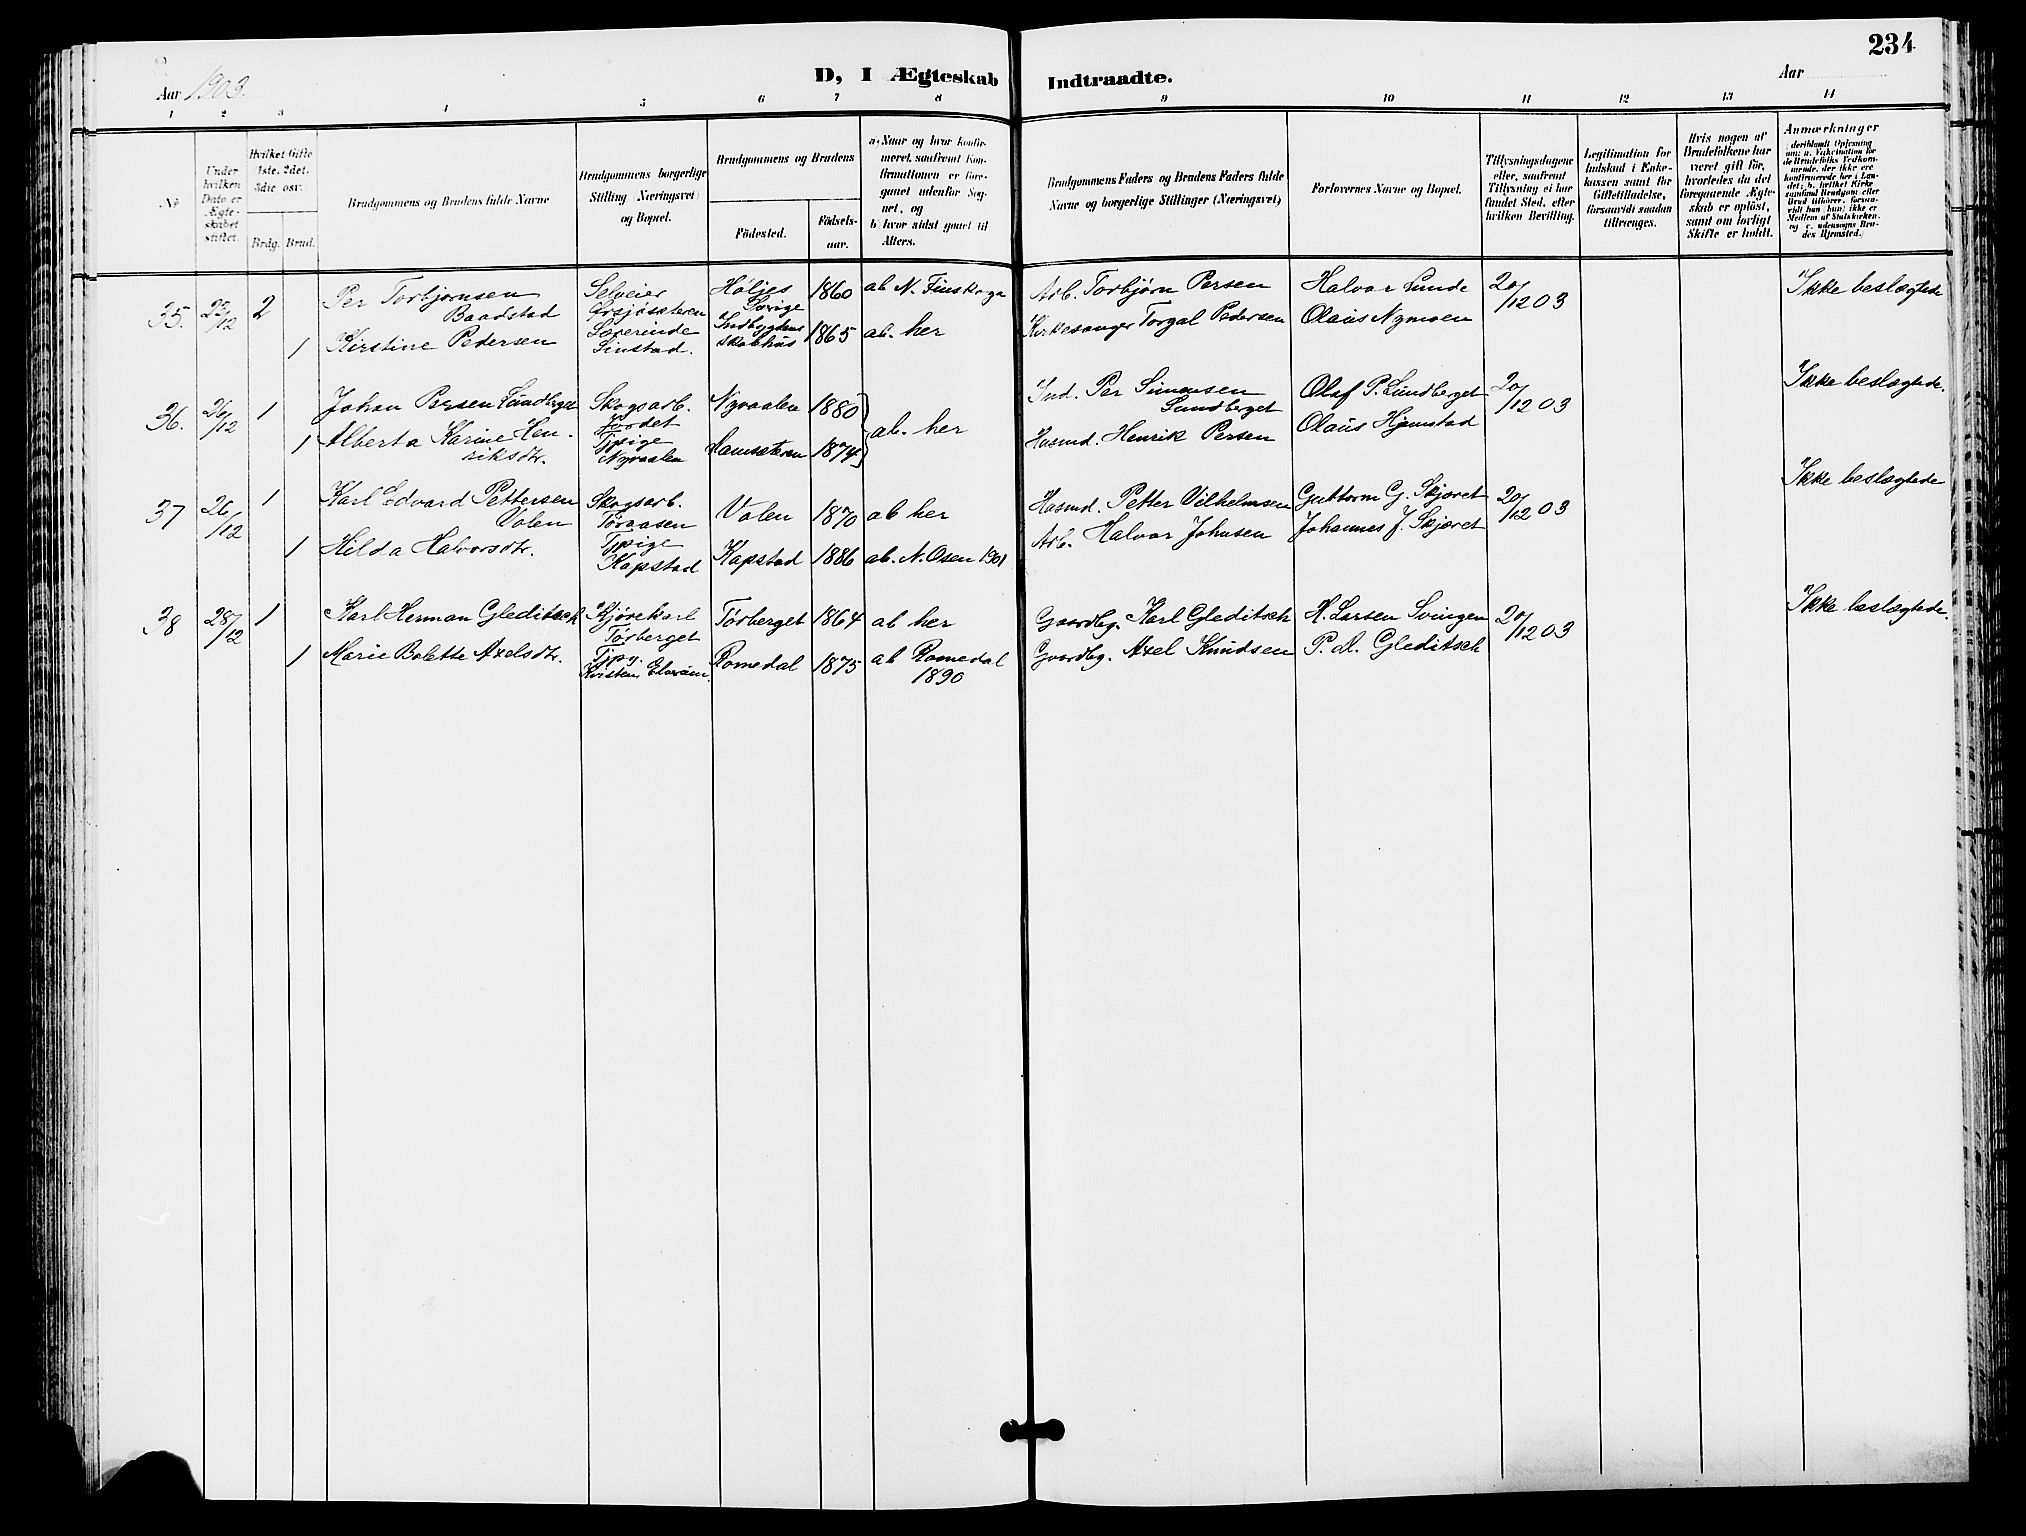 234
Aar 1903.
D, I Ægteskab Indtraadte.
Aar
1 2 3 4 5 6 7 8 9 10 11 12 13 14
No
Under hvilken Dato er Ægteskabet stiftet.
Hvilket Gifte 1ste, 2det, 3die osv.
Brdg. Brud.
Brudgommens og Brudens fulde Navne
Brudgommens borgerlige Stilling (Næringsvei) og Bopæl.
Brudgommens og Brudens
Fødested.
Fødselsaar.
a) Naar og hvor konfirmeret, saafremt Konfirmationen er foregaaet udenfor Sognet, og
b) hvor sidst gaaet til Alters.
Brudgommens Faders og Brudens Faders fulde Navne og borgerlige Stillinger (Næringsvei)
Forlovernes Navne og Bopæl.
Tillysningsdagene eller, saafremt Tillysning ei har fundet Sted, efter hvilken Bevilling.
Legitimation for Indskud i Enkekassen samt for Giftetilladelse, forsaavidt saadan tiltrænges.
Hvis nogen af Brudefolkene har været gift før, hvorledes da det foregaaende Ægteskab er opløst, samt om lovligt Skifte er holdt.
Anmærkninger (deriblandt Oplysning om: a. Vakcination for de Brudefolks Vedkommende, der ikke ere konfirmerede her i Landet; b. hvilket Kirkesamfund Brudgom eller Brud tilhører, forsaavidt han (hun) ikke er Medlem af Statskirken, og c. udensogns Brudes Hjemsted.)
35. 25/12 2 Per Torbjørnsen Baadstad Selveier Ørsjøsæteren Høljes Sverige 1860 ab N. Finskoga Arb. Torbjørn Persen Halvor Lunde 20/12 03 Ikke beslægtede
1 Kirstine Pedersen Lærerinde Linstad. Indbygdens Skolehus 1865 ab. her Kirkesanger Torgal Pedersen Olaus Nymoen
36. 26/12 1 Johan Persen Lundberget Skogsarb. Jordet Nyvaalen 1880 ab. her Ind. Per Simensen Lundberget Olaf P. Lundberget 20/12 03 Ikke beslægtede.
1 Alberta Karine Henriksdtr. Tjpige Nyvaalen Hamsæteren 1874 Husmd. Henrik Persen Olaus Hjemstad
37 26/12 1 Karl Edvard Pettersen Volen Skogsarb. Tøraasen Volen 1870 ab her Husmd. Petter Vilhelmsen Guttorm G. Skjæret 20/12 03 Ikke beslægtede
1 Hilda Halvorsdtr. Tjpige Kapstad Kapstad 1886 ab. N. Osen 1901 Arb. Halvor Johnsen Johannes J. Skjæret
38 28/12 1 Karl Herman Gleditsch Kjørekarl Tørberget Tørberget 1864 ab her Gaardbg. Karl Gleditsch H. Larsen Svingen 20/12 03 Ikke beslægtede.
1 Marie Bolette Axelsdtr. Tjpg. Kvisten, Elverum. Romedal 1875 ab Romedal 1890 Gaardbg. Axel Knudsen P. A. Gleditsch